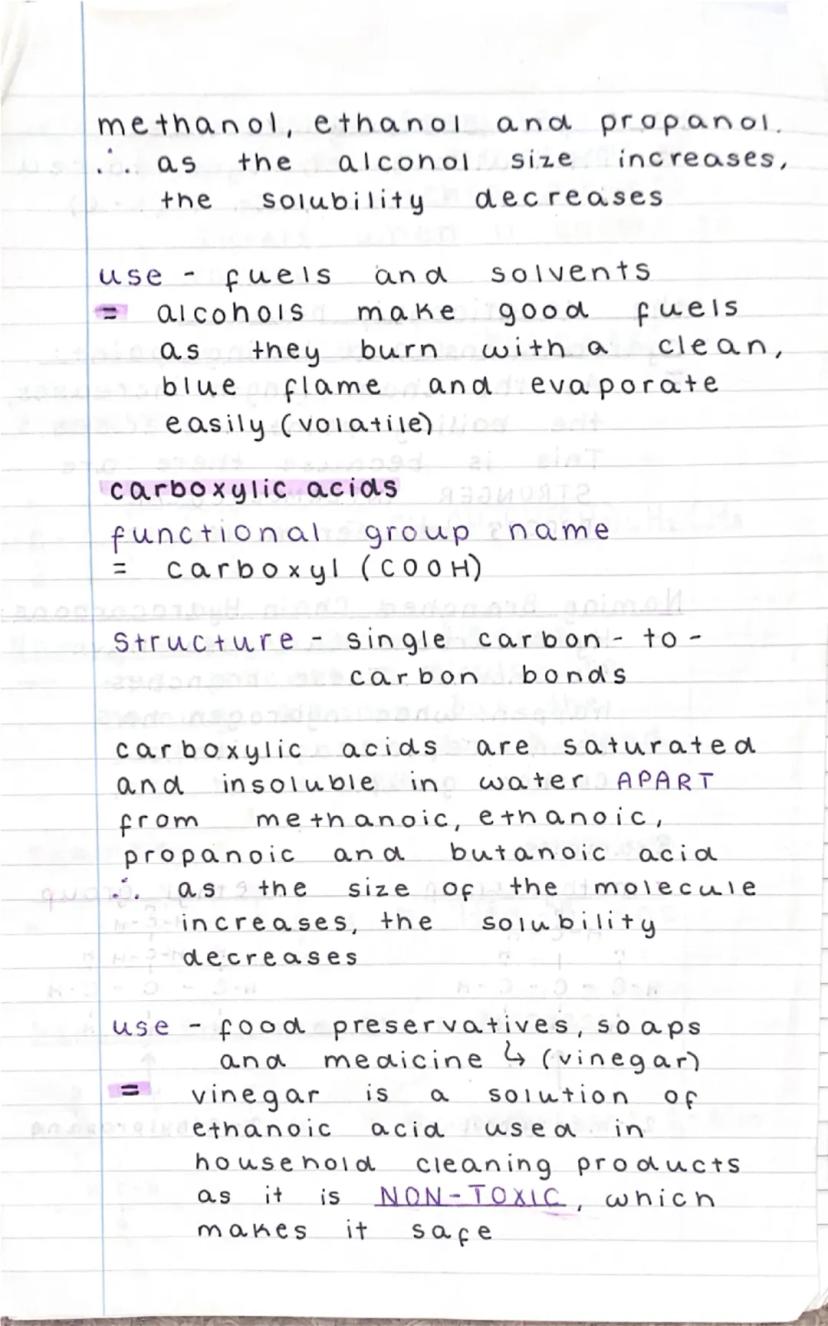 methanol, ethanol and propanol.
∴ as the alcohol size increases,
the solubility decreases
use - fuels and solvents
= alcohols make good fuels
as they burn with a clean,
blue flame and evaporate
easily (volatile)
carboxylic acids
functional group name
= carboxyl (COOH)
Structure - single carbon-to-
carbon bonds
carboxylic acids are saturated
and insoluble in water APART
from methanoic, ethanoic,
propanoic and butanoic acid
∴ as the size of the molecule
increases, the solubility
decreases
use - food preservatives, soaps
and medicine ↳ (vinegar)
= vinegar is a solution of
ethanoic acid used in
household cleaning products
as it is NON-TOXIC, which
makes it safe